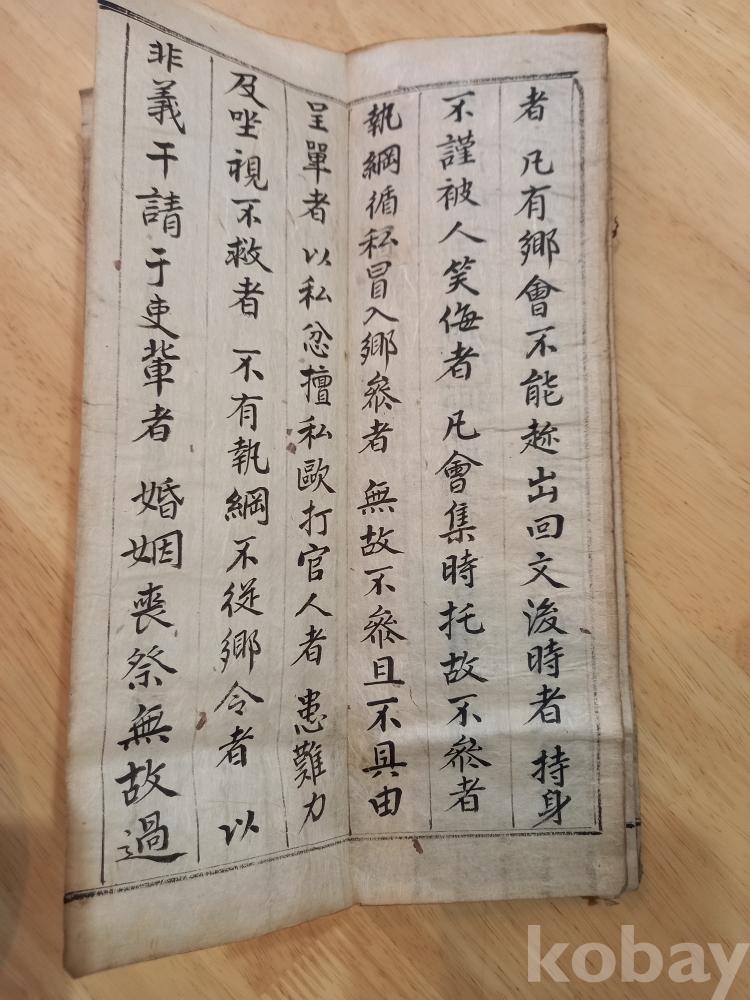 者 凡有鄕會不能趂出回文後時者 持身
不謹被人笑侮者 凡會集時托故不叅者
執綱循私冒入鄕叅者 無故不叅且不具由
呈單者 以私忿擅私歐打官人者 患難力
及坐視不救者 不有執綱不從鄕令者 以
非義干請于吏輩者 婚姻喪祭無故過
kobay